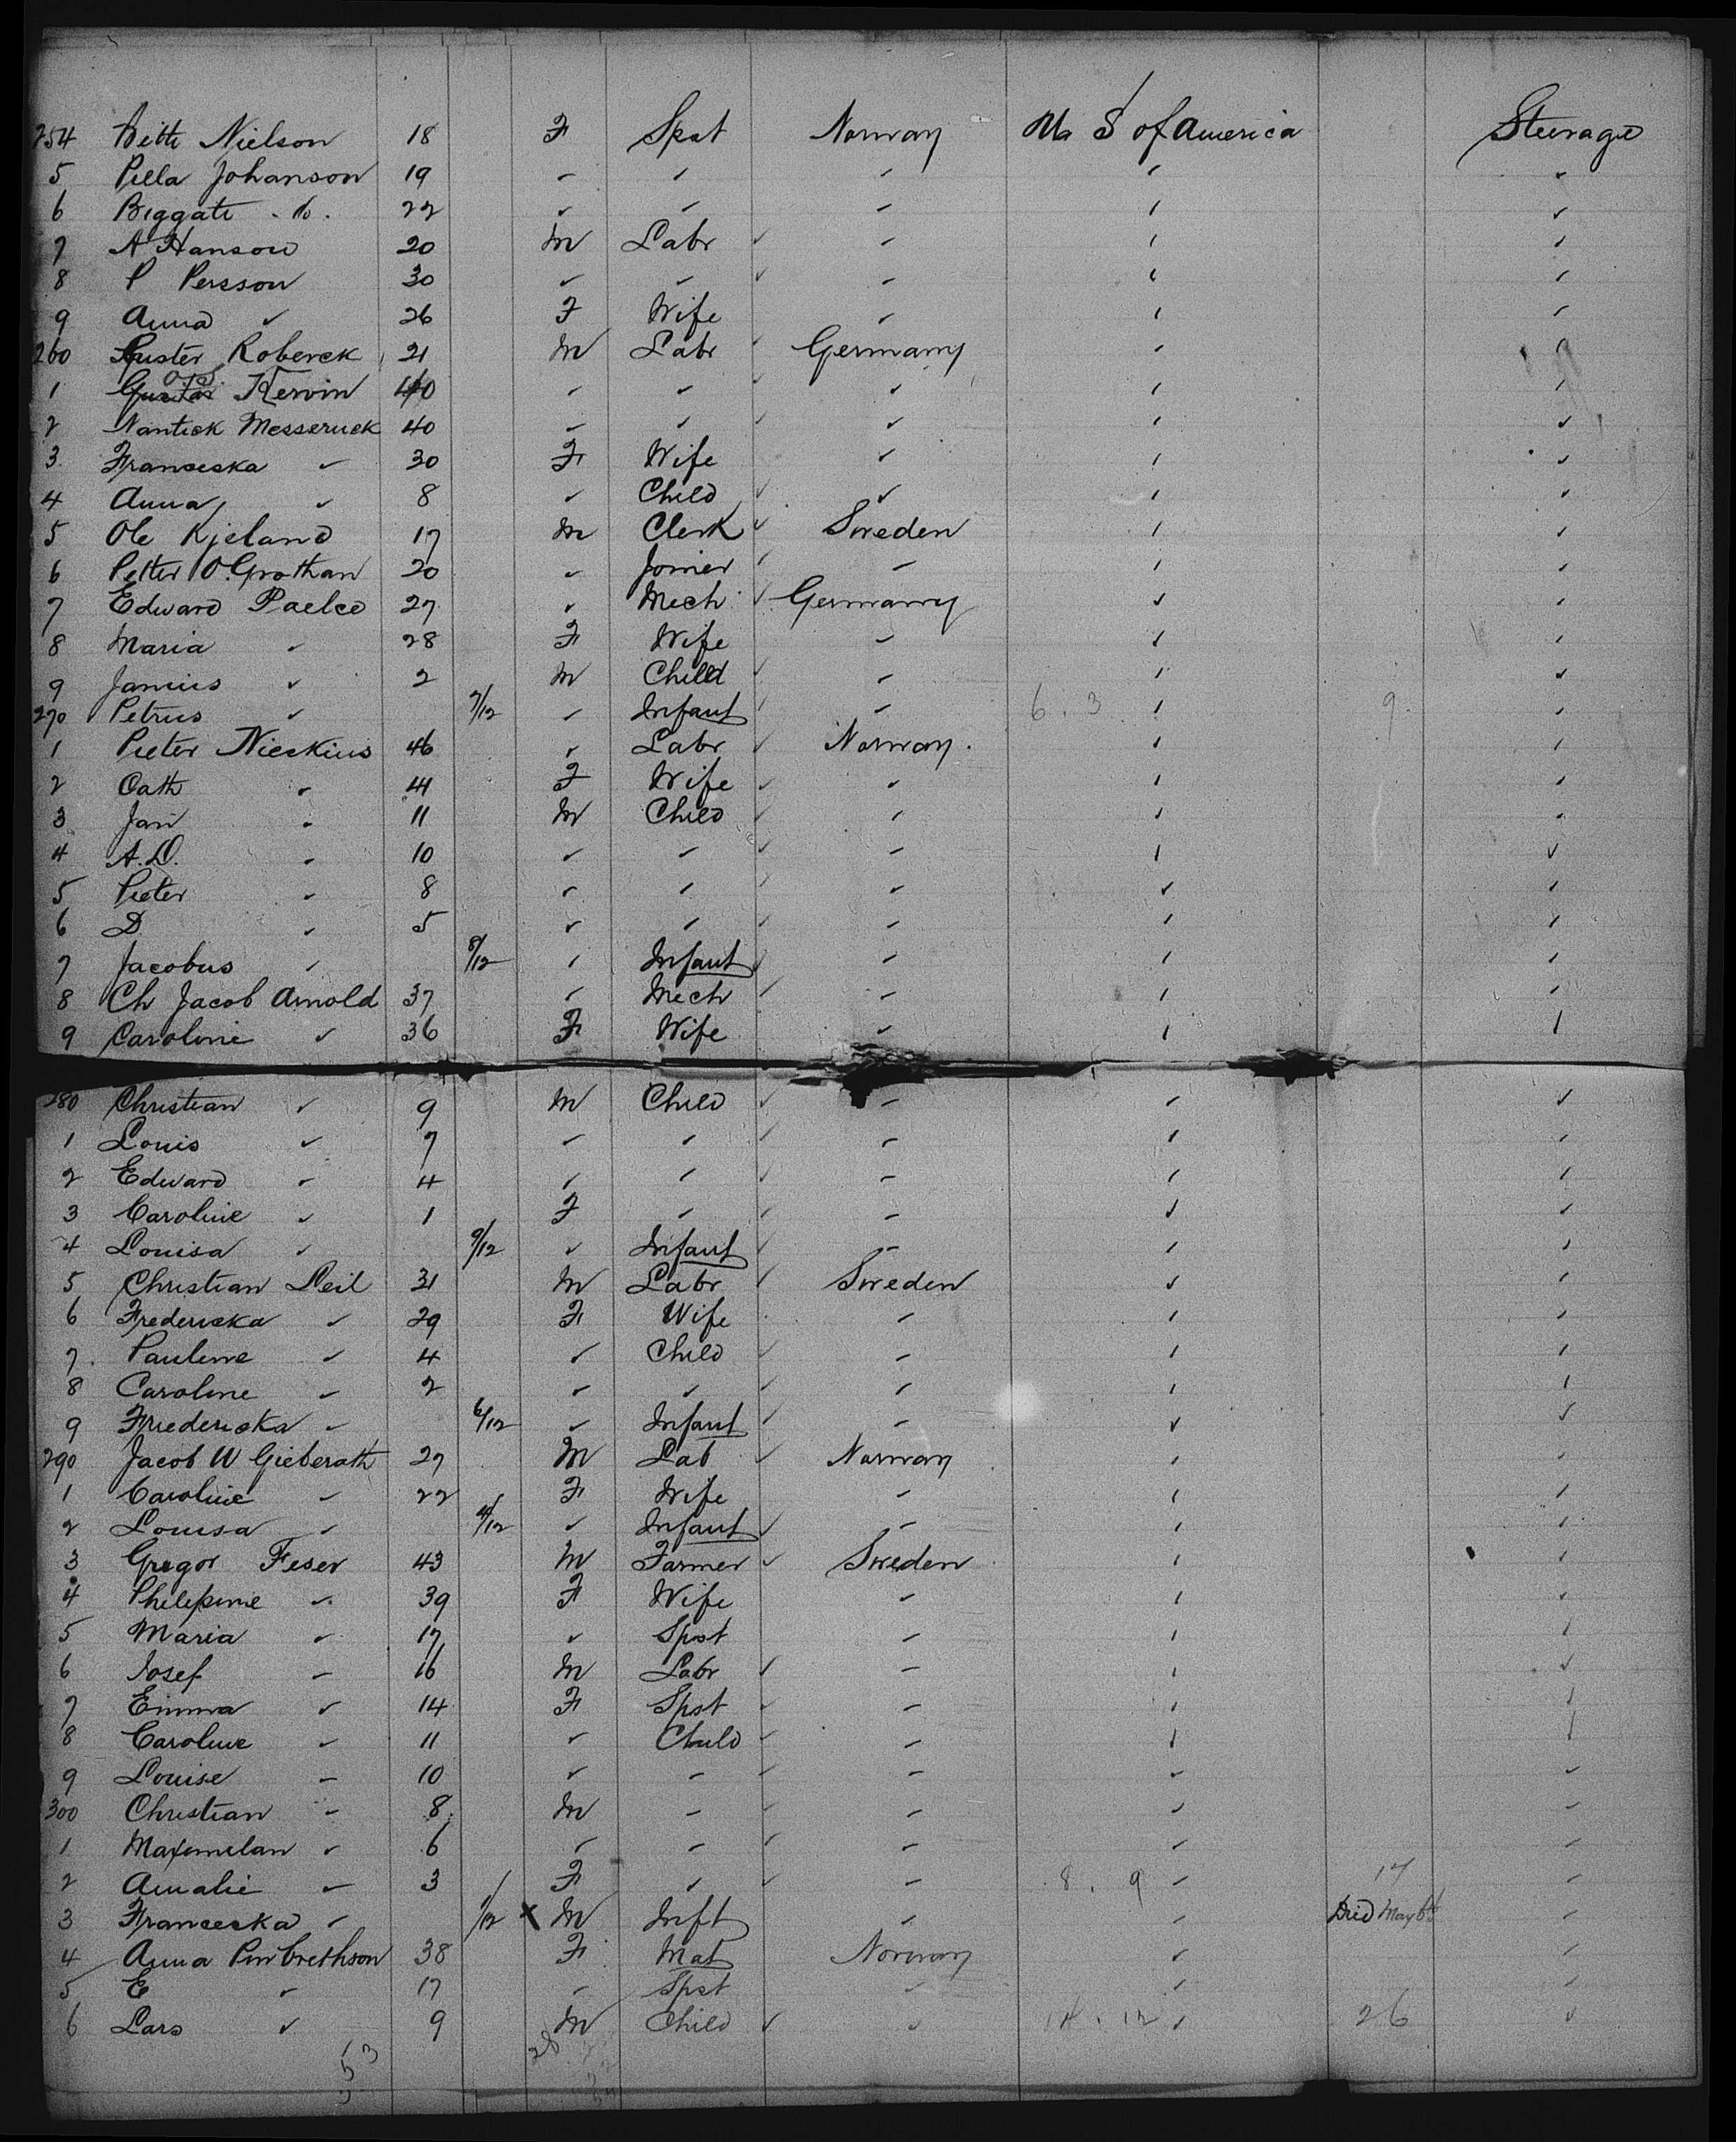 254 Bitti Nielson 18 F Spst Norway U S of America Steerage
5 Pella Johanson 19 " " " " "
6 Biggati do. 22 " " " " "
7 A Hanson 20 M Labr " " "
8 P Persson 30 " " " " "
9 Anna " 26 F Wife " " "
260 Roberck 21 M Labr Germany " "
1 Kervin 40 " " " " "
2 Nantick Messeruck 40 " " " " "
3 Franceska " 30 F Wife " " "
4 Anna " 8 " Child " " "
5 Ole Kjeland 17 M Clerk Sweden " "
6 Petter O. Grothan 20 " Joiner " " "
7 Edward Paelce 27 " Mech Germany " "
8 Maria " 28 F Wife " " "
9 Janius " 2 M Child " " "
270 Petrus " 7/12 " Infant " 6. 3 " 9. "
1 Pieter Nieskius 46 " Labr Norway. " "
2 Cath " 41 F Wife " " "
3 Jan " 11 M Child " " "
4 A.D. " 10 " " " " "
5 Pieter " 8 " " " " "
6 D " 5 " " " " "
7 Jacobus " 8/12 " Infant " " "
8 Ch Jacob Arnold 37 " Mech " " "
9 Caroline " 36 F Wife " " "
280 Christian " 9 M Child " " "
1 Louis " 7 " " " " "
2 Edward " 4 " " " " "
3 Caroline " 1 F " " " "
4 Louisa " 9/12 " Infant " " "
5 Christian Leil 31 M Labr Sweden " "
6 Fredericka " 29 F Wife " " "
7. Pauline " 4 " Child " " "
8 Caroline " 2 " " " " "
9 Friedericka " 6/12 " Infant " " "
290 Jacob W Gieberath 27 M Lab Norway " "
1 Caroline " 22 F Wife " " "
2 Louisa " 4/12 " Infant " " "
3 Gregor Feser 43 M Farmer Sweden " "
4 Philepine " 39 F Wife " " "
5 Maria " 17 " Spst " " "
6 Josef " 16 M Labr " " "
7 Emma " 14 F Spst " " "
8 Caroline " 11 " Child " " "
9 Louise " 10 " " " " "
300 Christian " 8 M " " " "
1 Maxemilan " 6 " " " " "
2 Amalie " 3 F " " 8. 9 " 17 "
3 Franceska " 1/12 x M Inft " " Died May 6th "
4 Anna Pinbrethson 38 F Mat Norway " "
5 E " 17 " Spst " " "
6 Lars " 9 M Child " 14. 12 " 26 "
53 28